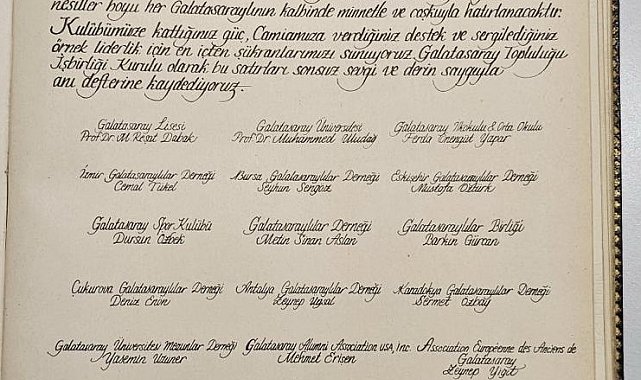 nesiller boyu her Galatasaraylının kalbinde minnetle ve coşkuyla hatırlanacaktır.
Kulübümüze kattığınız güç, Camiamıza verdiğiniz destek ve sergilediğiniz
örnek liderlik için en içten şükranlarımızı sunuyoruz. Galatasaray Topluluğu
İşbirliği Kurulu olarak bu satırları sonsuz sevgi ve derin saygıyla
anı defterine kaydediyoruz.
Galatasaray Lisesi Galatasaray Üniversitesi Galatasaray İlkokulu & Orta Okulu
Prof.Dr. M. Reşat Dabak Prof.Dr. Muhammed Uludağ Ferda Yapar
İzmir Galatasaraylılar Derneği Bursa Galatasaraylılar Derneği Eskişehir Galatasaraylılar Derneği
Cemal Tükel Seyhun Şengöz Mustafa Öztürk
Galatasaray Spor Kulübü Galatasaraylılar Derneği Galatasaraylılar Birliği
Dursun Özbek Metin Sinan Aslan Barkın Gürcan
Çukurova Galatasaraylılar Derneği Antalya Galatasaraylılar Derneği Karadokya Galatasaraylılar Derneği
Deniz Enön Zeynep Uysal Sermet Özbağ
Galatasaray Üniversitesi Mezunlar Derneği Galatasaray Alumni Association USA, Inc. Association Européenne des Anciens de
Yasemin Uzuner Mehmet Erisen Galatasaray
Zeynep Yiğit